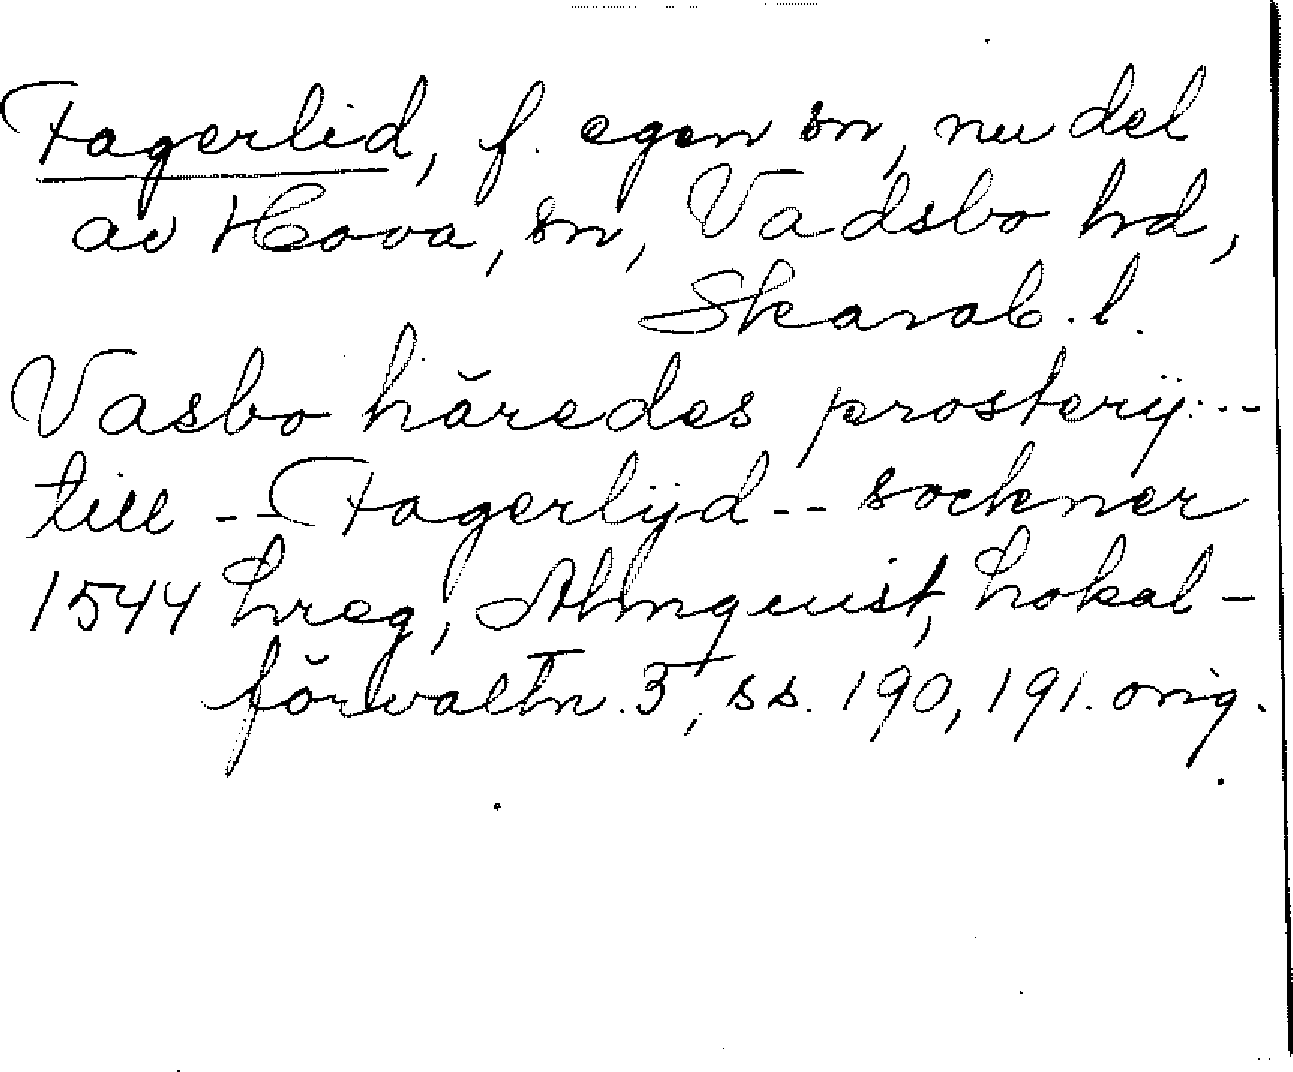 Fagerlid, f. egen sn, nu del
av Hova, sn, Vadsbo hd,
Skarab. l.
Vasbo häredes prosterij:--
till -- Fagerlijd -- sockner
1544 Lreg, Almquist, Lokal-
förvaltn. 3, ss. 190, 191. orig.